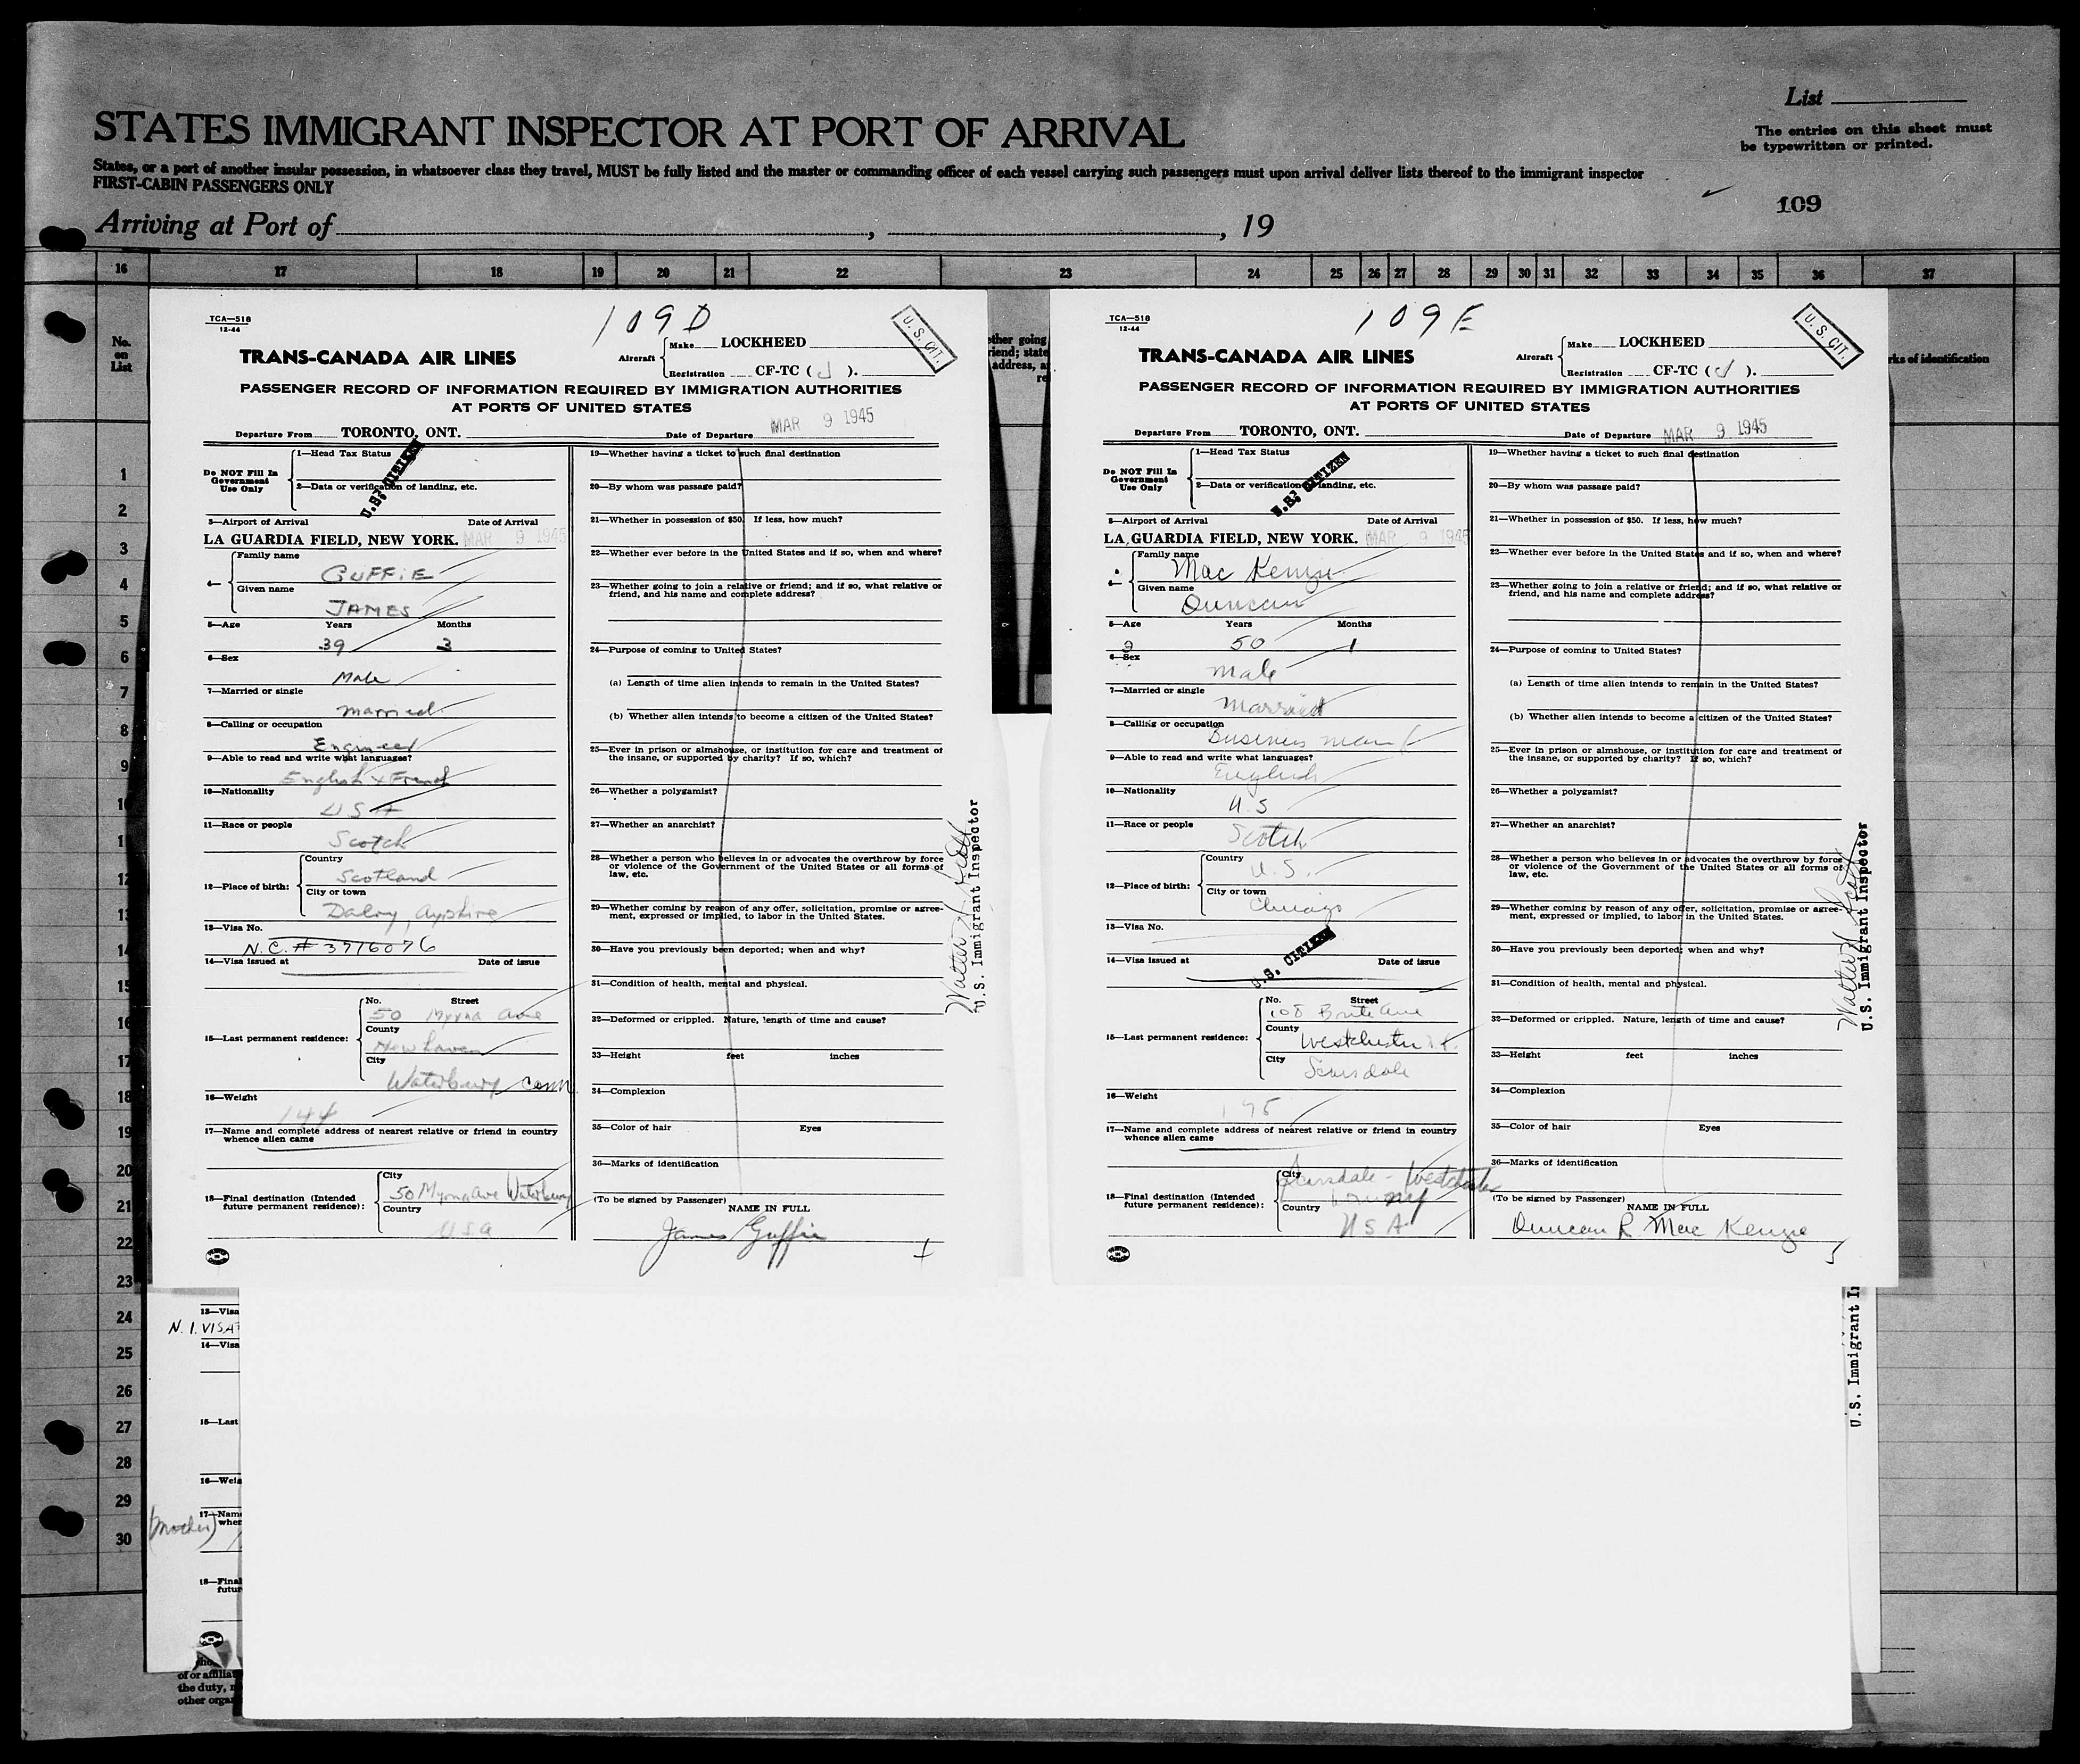 List
STATES IMMIGRANT INSPECTOR AT PORT OF ARRIVAL
The entries on this sheet must
be typewritten or printed.
States, or a part of another insular possession, in whatsoever class they travel, MUST be fully listed and the master or commanding officer of each vessel carrying such passengers must upon arrival deliver lists thereof to the immigrant inspector
FIRST-CABIN PASSENGERS ONLY
109
Arriving at Port of , , 19
16 17 18 19 20 21 22 23 24 25 26 27 28 29 30 31 32 33 34 35 36 37
No.
on
List
1
2
3
4
5
6
7
8
9
10
11
12
13
14
15
16
17
18
19
20
21
22
23
24
25
26
27
28
29
30
TCA—518
12-44
109D
U. S. CIT.
TRANS-CANADA AIR LINES
Aircraft
Make LOCKHEED
Registration CF-TC ( J ).
PASSENGER RECORD OF INFORMATION REQUIRED BY IMMIGRATION AUTHORITIES
AT PORTS OF UNITED STATES
Departure From TORONTO, ONT. Date of Departure MAR 9 1945
Do NOT Fill In
Government
Use Only
1—Head Tax Status
2—Data or verification of landing, etc.
U.S. CITIZEN
3—Airport of Arrival Date of Arrival
LA GUARDIA FIELD, NEW YORK. MAR 9 1945
4—
Family name
GUFFIE
Given name
JAMES
5—Age Years Months
39 3
6—Sex
Male
7—Married or single
married
8—Calling or occupation
Engineer
9—Able to read and write what languages?
English & French
10—Nationality
USA
11—Race or people
Scotch
12—Place of birth:
Country
Scotland
City or town
Dalry, Ayrshire
13—Visa No.
N.C. # 3716076
14—Visa issued at Date of issue
15—Last permanent residence:
No. Street
50 Myrna Ave
County
New haven
City
Waterbury Conn
16—Weight
144
17—Name and complete address of nearest relative or friend in country
whence alien came
18—Final destination (Intended
future permanent residence):
City
50 Myrna Ave Waterbury
Country
USA
19—Whether having a ticket to such final destination
20—By whom was passage paid?
21—Whether in possession of $50. If less, how much?
22—Whether ever before in the United States and if so, when and where?
23—Whether going to join a relative or friend; and if so, what relative or
friend, and his name and complete address?
24—Purpose of coming to United States?
(a) Length of time alien intends to remain in the United States?
(b) Whether alien intends to become a citizen of the United States?
25—Ever in prison or almshouse, or institution for care and treatment of
the insane, or supported by charity? If so, which?
26—Whether a polygamist?
27—Whether an anarchist?
28—Whether a person who believes in or advocates the overthrow by force
or violence of the Government of the United States or all forms of
law, etc.
29—Whether coming by reason of any offer, solicitation, promise or agree-
ment, expressed or implied, to labor in the United States.
30—Have you previously been deported; when and why?
31—Condition of health, mental and physical.
32—Deformed or crippled. Nature, length of time and cause?
33—Height feet inches
34—Complexion
35—Color of hair Eyes
36—Marks of identification
(To be signed by Passenger)
NAME IN FULL
James Guffie
U.S. Immigrant Inspector
ether going
riend; state
address, a
re
TCA—518
12-44
109E
U. S. CIT.
TRANS-CANADA AIR LINES
Aircraft
Make LOCKHEED
Registration CF-TC ( J ).
PASSENGER RECORD OF INFORMATION REQUIRED BY IMMIGRATION AUTHORITIES
AT PORTS OF UNITED STATES
Departure From TORONTO, ONT. Date of Departure MAR 9 1945
Do NOT Fill In
Government
Use Only
1—Head Tax Status
2—Data or verification landing, etc.
U.S. CITIZEN
3—Airport of Arrival Date of Arrival
LA GUARDIA FIELD, NEW YORK. MAR 9 1945
4—
Family name
Mac Kenzie
Given name
Duncan
5—Age Years Months
50 1
6—Sex
Male
7—Married or single
Married
8—Calling or occupation
Business man
9—Able to read and write what languages?
English
10—Nationality
U.S
11—Race or people
Scotch
12—Place of birth:
Country
U.S.
City or town
Chicago
13—Visa No.
14—Visa issued at Date of issue
U.S. CITIZEN
15—Last permanent residence:
No. Street
Ave
County
Westchester
City
Scarsdale
16—Weight
195
17—Name and complete address of nearest relative or friend in country
whence alien came
18—Final destination (Intended
future permanent residence):
City
Scarsdale - Westchester
NY
Country
USA
19—Whether having a ticket to such final destination
20—By whom was passage paid?
21—Whether in possession of $50. If less, how much?
22—Whether ever before in the United States and if so, when and where?
23—Whether going to join a relative or friend; and if so, what relative or
friend, and his name and complete address?
24—Purpose of coming to United States?
(a) Length of time alien intends to remain in the United States?
(b) Whether alien intends to become a citizen of the United States?
25—Ever in prison or almshouse, or institution for care and treatment of
the insane, or supported by charity? If so, which?
26—Whether a polygamist?
27—Whether an anarchist?
28—Whether a person who believes in or advocates the overthrow by force
or violence of the Government of the United States or all forms of
law, etc.
29—Whether coming by reason of any offer, solicitation, promise or agree-
ment, expressed or implied, to labor in the United States.
30—Have you previously been deported; when and why?
31—Condition of health, mental and physical.
32—Deformed or crippled. Nature, length of time and cause?
33—Height feet inches
34—Complexion
35—Color of hair Eyes
36—Marks of identification
(To be signed by Passenger)
NAME IN FULL
Duncan R. Mac Kenzie
U.S. Immigrant Inspector
rks of identification
13—Visa
N. I. VISA
14—Visa
15—Last
16—Weig
17—Name
when
(Mother)
18—Final
futur
of or affilia
the duty,
other orga
U.S. Immigrant I